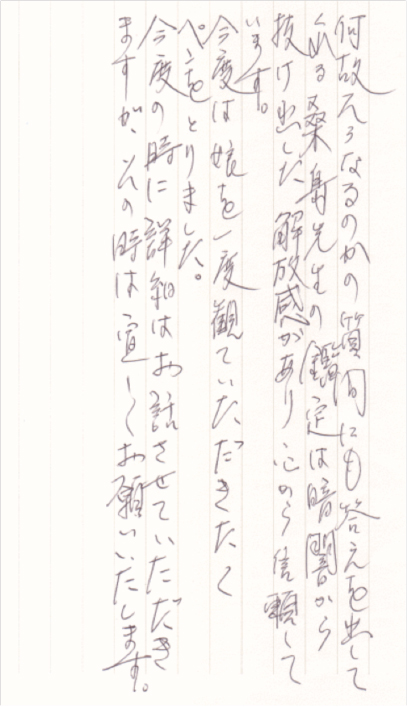 何故そうなるのかの質問にも答えを出して
くれる桑島先生の鑑定は暗闇から
抜け出した解放感があり心から信頼して
います。
今度は娘を一度観ていただきたく
ペンをとりました。
今度の時に詳細はお話させていただき
ますが、その時は宜しくお願いいたします。